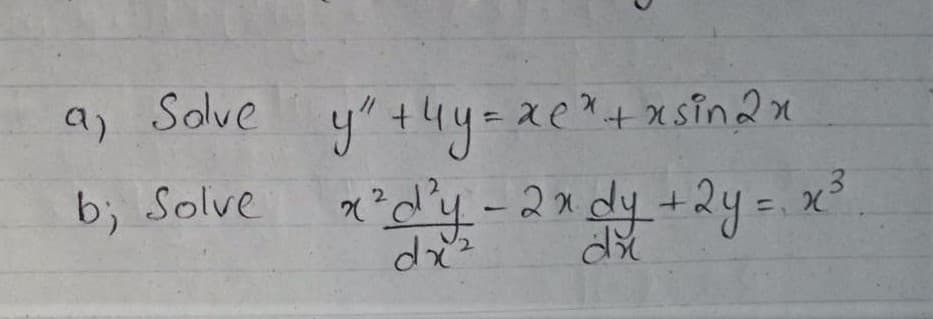 a, Solve y″ + 4y = xeˣ + x sin2x
b; Solve x² d²y/dx² - 2x dy/dx + 2y = x³.